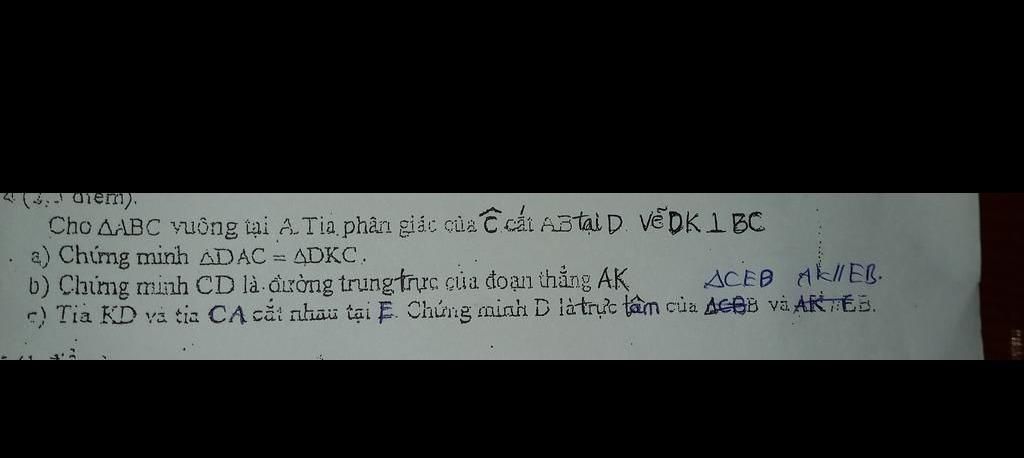 điểm).
Cho △ABC vuông tại A. Tia phân giác của Ĉ cắt AB tại D. Vẽ DK ⊥ BC
a) Chứng minh △DAC = △DKC.
b) Chứng minh CD là đường trung trực của đoạn thẳng AK
△CEB AK//EB.
c) Tia KD và tia CA cắt nhau tại E. Chứng minh D là trực tâm của △CEB và AK//EB.